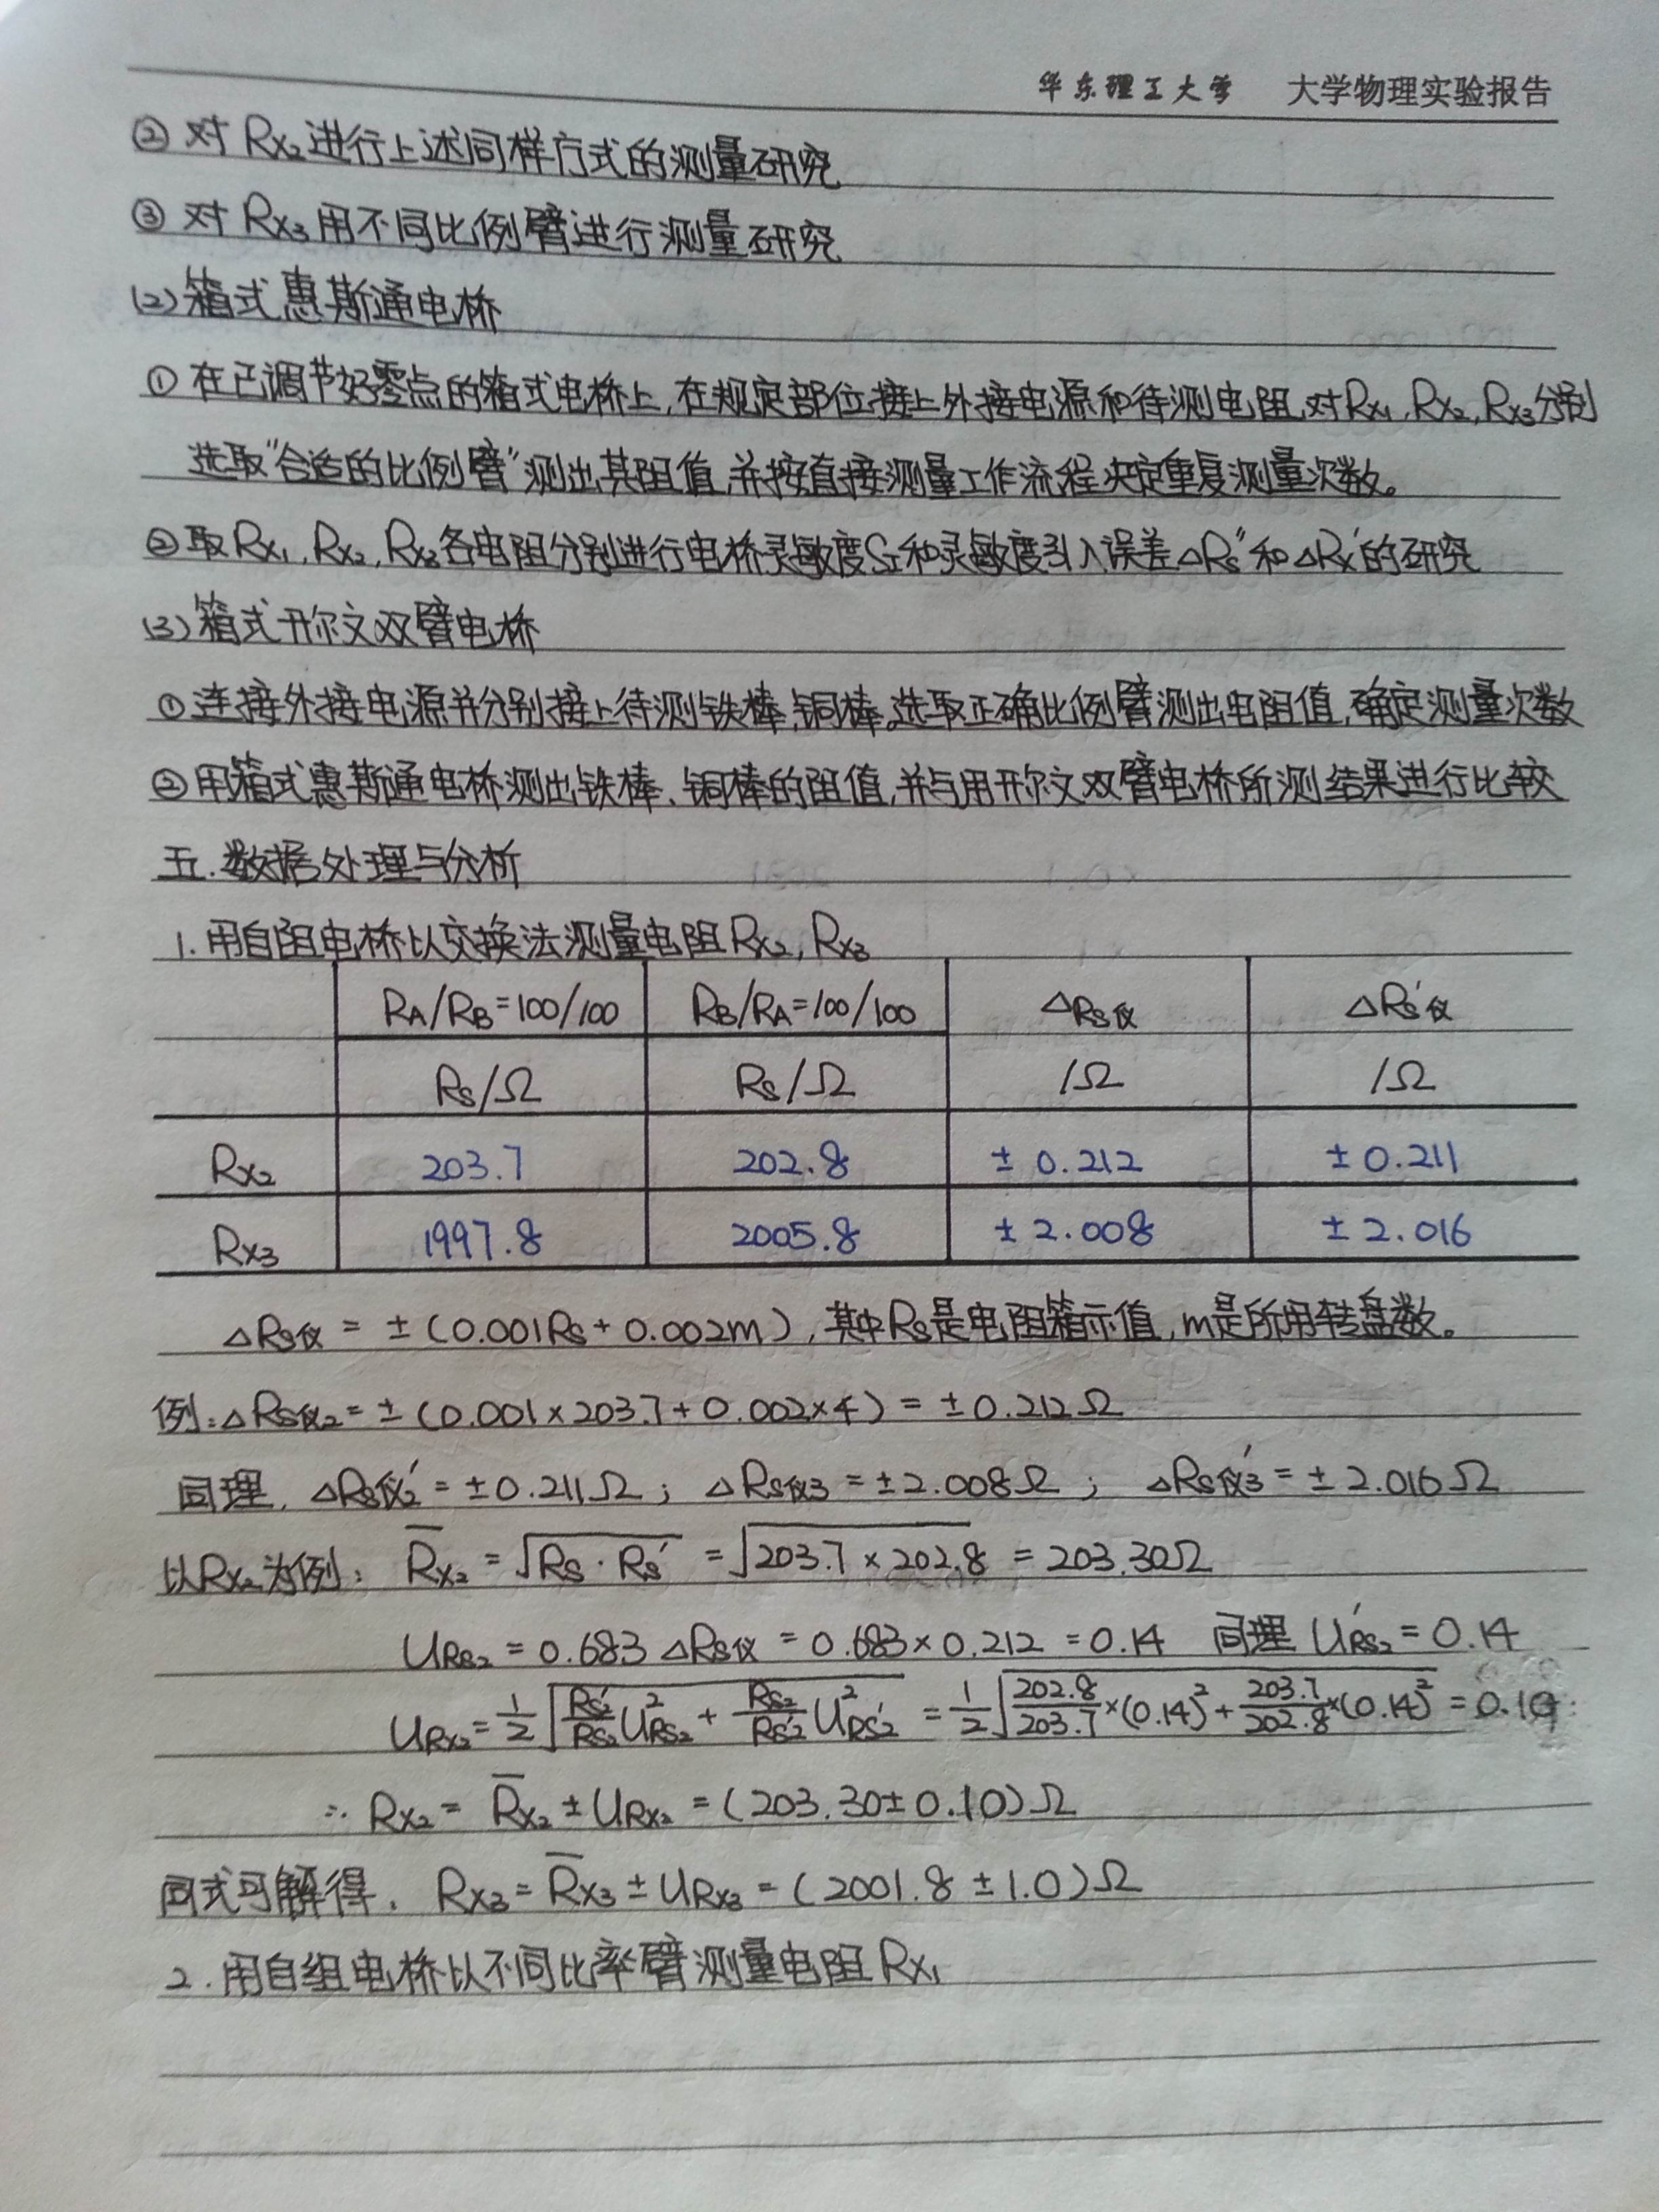 华东理工大学 大学物理实验报告
② 对Rx₂进行上述同样方式的测量研究
③ 对Rx₃用不同比例臂进行测量研究
(2)箱式惠斯通电桥
① 在已调节好零点的箱式电桥上,在规定部位接上外接电源和待测电阻,对Rx₁,Rx₂,Rx₃分别
选取“合适的比例臂”测出其阻值,并按直接测量工作流程决定重复测量次数。
② 取Rx₁,Rx₂,Rx₃各电阻分别进行电桥灵敏度S和灵敏度引入误差△Rs″和△Rx′的研究
(3)箱式开尔文双臂电桥
① 连接外接电源并分别接上待测铁棒,铜棒。选取正确比例臂测出电阻值,确定测量次数
② 用箱式惠斯通电桥测出铁棒、铜棒的阻值,并与用开尔文双臂电桥所测结果进行比较
五.数据处理与分析
1.用自阻电桥以交换法测量电阻Rx₂,Rx₃
RA/RB=100/100 RB/RA=100/100 △Rs仪 △Rs′仪
Rs/Ω Rs/Ω /Ω /Ω
Rx₂ 203.7 202.8 ±0.212 ±0.211
Rx₃ 1997.8 2005.8 ±2.008 ±2.016
△Rs仪 = ±(0.001Rs+0.002m),其中Rs是电阻箱示值,m是所用转盘数。
例:△Rs仪₂=±(0.001×203.7+0.002×4)=±0.212Ω
同理,△Rs仪₂′=±0.211Ω;△Rs仪3=±2.008Ω;△Rs仪3′=±2.016Ω
以Rx₂为例:R̅x₂=√(Rs·Rs′)=√(203.7×202.8)=203.30Ω
URs₂=0.683△Rs仪=0.683×0.212=0.14 同理U′Rs₂=0.14
URx₂=1/2√(Rs₂′/Rs₂ U²Rs₂+Rs₂/Rs₂′ U²Rs₂′)=1/2√(202.8/203.7×(0.14)²+203.7/202.8×(0.14)²)=0.10
∴Rx₂=R̅x₂±URx₂=(203.30±0.10)Ω
同式可解得,Rx₃=R̅x₃±URx₃=(2001.8±1.0)Ω
2.用自组电桥以不同比率臂测量电阻Rx₁